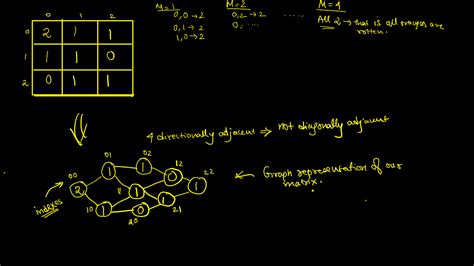 0 1 2
0 2 1 1
1 1 1 0
2 0 1 1
M=1
0,0→2
0,1→2
1,0→2
M=2
0,2→2
0, ......
M=4
All 2→that is all oranges are
rotten.
4 directionally adjacent ⇒ not diagonally adjacent
01 02
00 1 1 12
0 22
2 11 1 1
indexes
10 1 0 1 21
20
Graph representation of our
matrix.